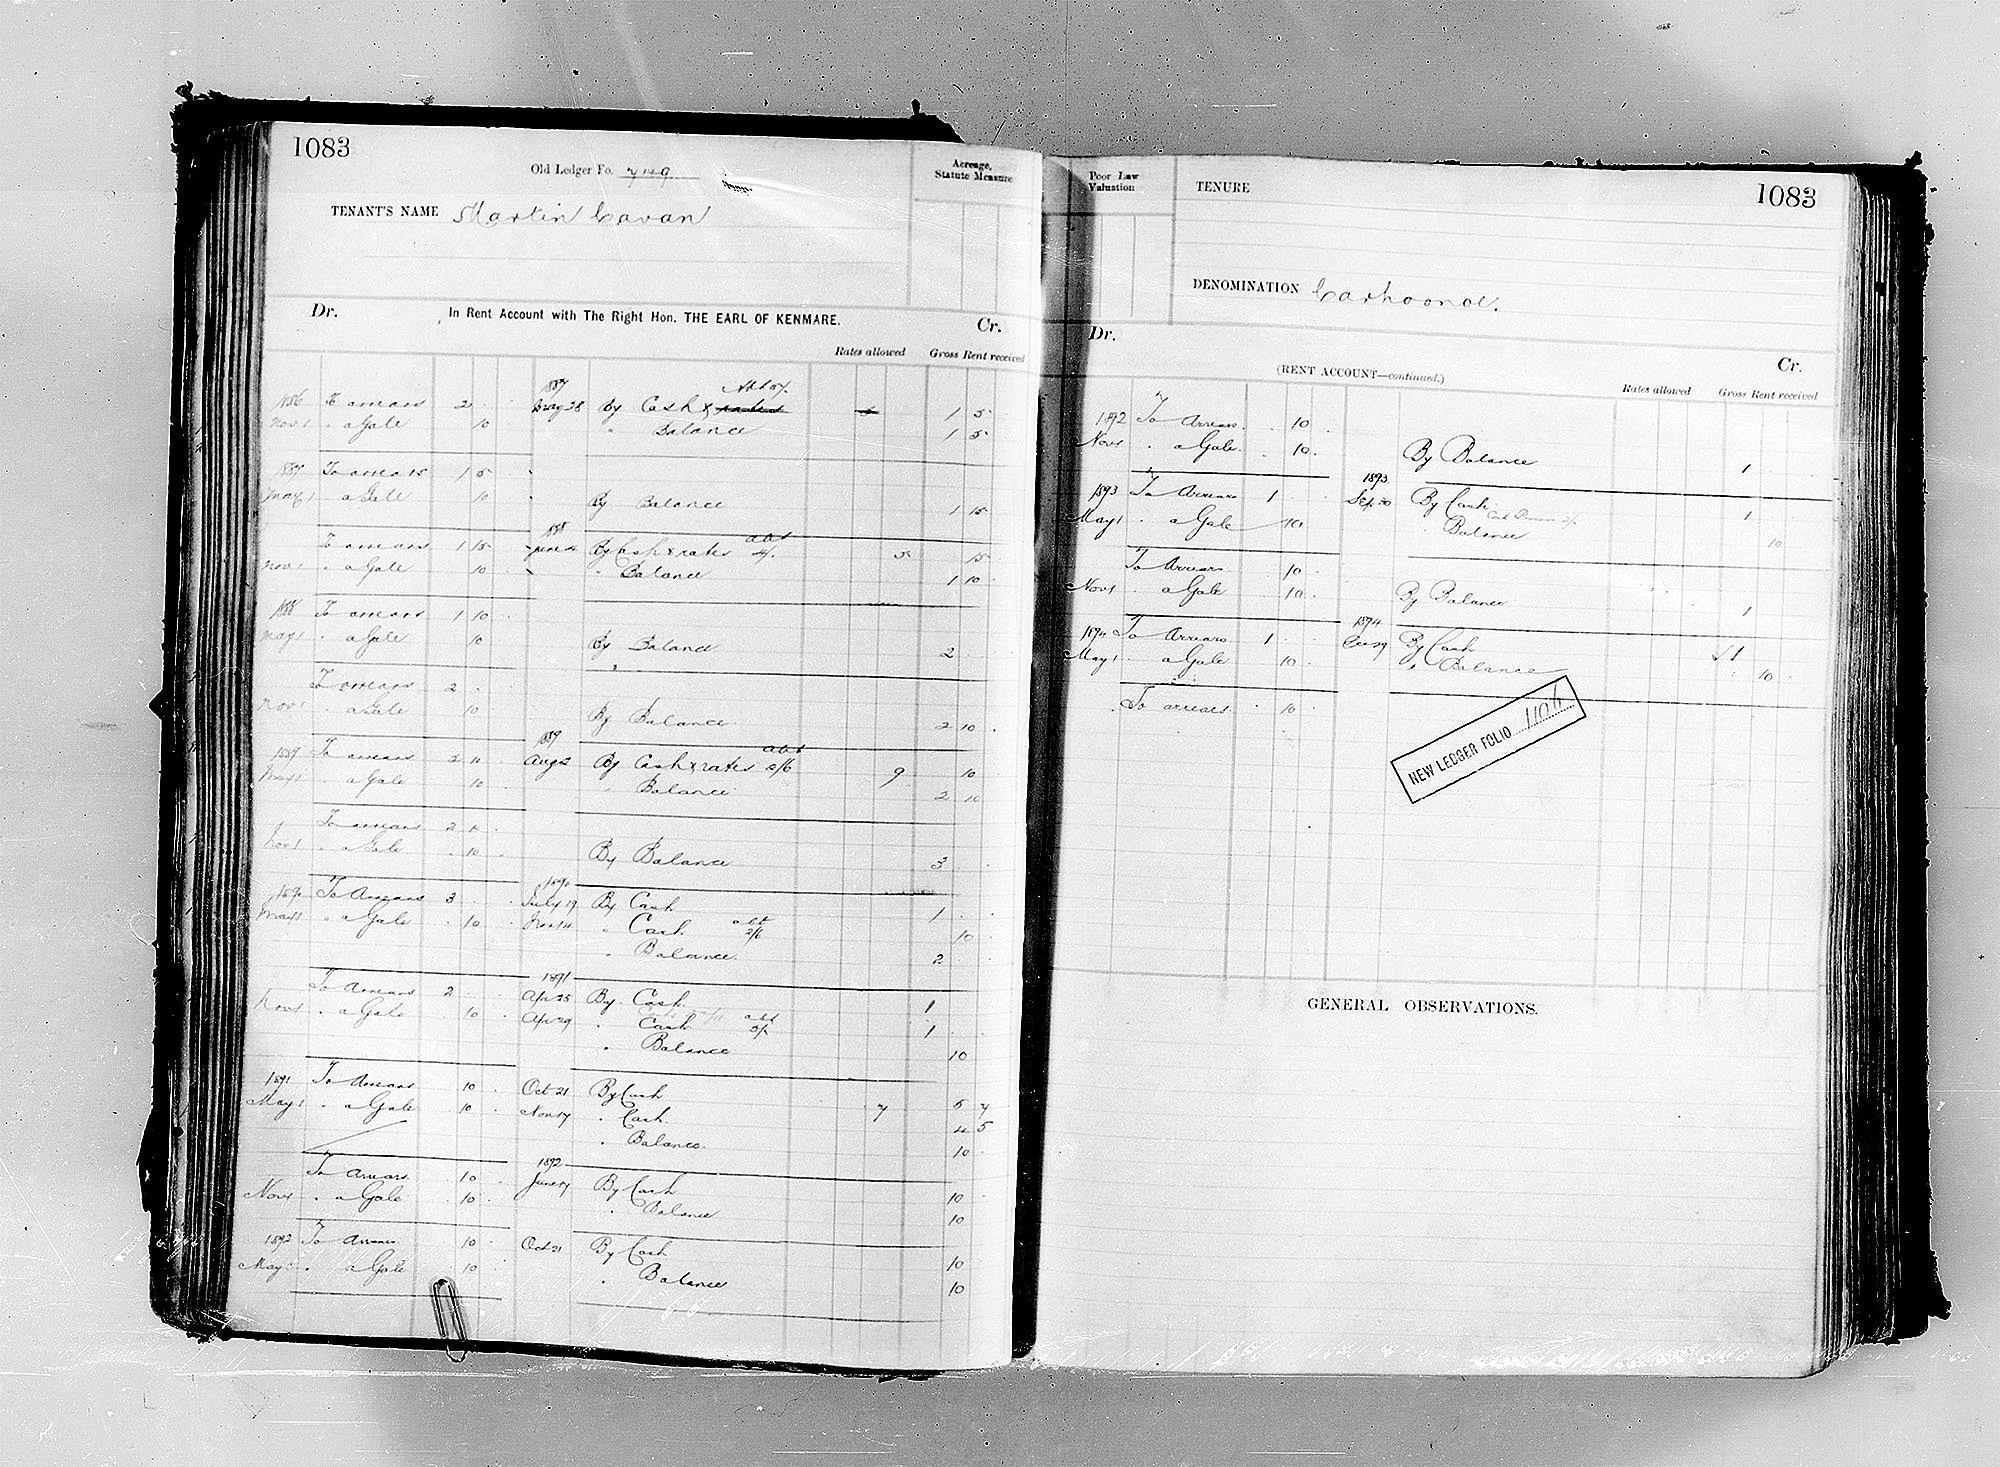 1083
Old Ledger Fo. 749
Acreage,
Statute Measure
TENANT'S NAME Martin Cavan
Dr. In Rent Account with The Right Hon. THE EARL OF KENMARE. Cr.
Rates allowed Gross Rent received
1886 To arrears 2 1887 May 28 By Cash & rates 1 5
Nov 1 " a Gale 10 " Balance 1 5
1887 To arrears 1 5
May 1 " a Gale 10 By Balance 1 15
To arrears 1 15 1888 June 4 By Cash & rates abt 5/. 5 15
Nov 1 " a Gale 10 " Balance 1 10
1888 To arrears 1 10
May 1 " a Gale 10 By Balance 2
To arrears 2
Nov 1 " a Gale 10 By Balance 2 10
1889 To arrears 2 10 1889 Aug 2 By Cash & rates abt 2/6 9 10
May 1 " a Gale 10 " Balance 2 10
To arrears 2 10
Nov 1 " a Gale 10 By Balance 3
1890 To Arrears 3 1890 July 19 By Cash 1
May 1 " a Gale 10 Nov 14 " Cash abt 2/6 10
" Balance 2
To Arrears 2 1891 Apr 25 By Cash 1
Nov 1 " a Gale 10 Apr 29 " Cash abt 5/. 1
" Balance 10
1891 To Arrears 10 Oct 21 By Cash 5 7
May 1 " a Gale 10 Nov 17 " Cash 7 4 5
" Balance 10
To Arrears 10 1892 June 17 By Cash 10
Nov 1 " a Gale 10 " Balance 10
1892 To Arrears 10 Oct 21 By Cash 10
May 1 " a Gale 10 " Balance 10
Poor Law
Valuation
TENURE
1083
DENOMINATION Carhoonoe.
Dr. (RENT ACCOUNT—continued.) Cr.
Rates allowed Gross Rent received
1892 To Arrears 10
Nov 1 " a Gale 10 By Balance 1
1893 To Arrears 1 1893 Sep 30 By Cash 1
May 1 " a Gale 10 " Balance 10
To Arrears 10
Nov 1 " a Gale 10 By Balance 1
1894 To Arrears 1 1894 Dec 29 By Cash 1
May 1 " a Gale 10 " Balance 10
To arrears 10
NEW LEDGER FOLIO 1106
GENERAL OBSERVATIONS.